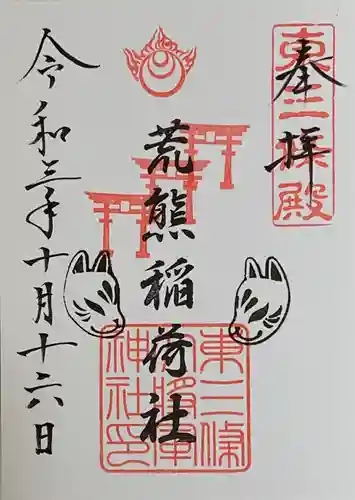 奉拝
東三条殿
荒熊稲荷社
東三條
大将軍
神社印
令和三年十月十六日